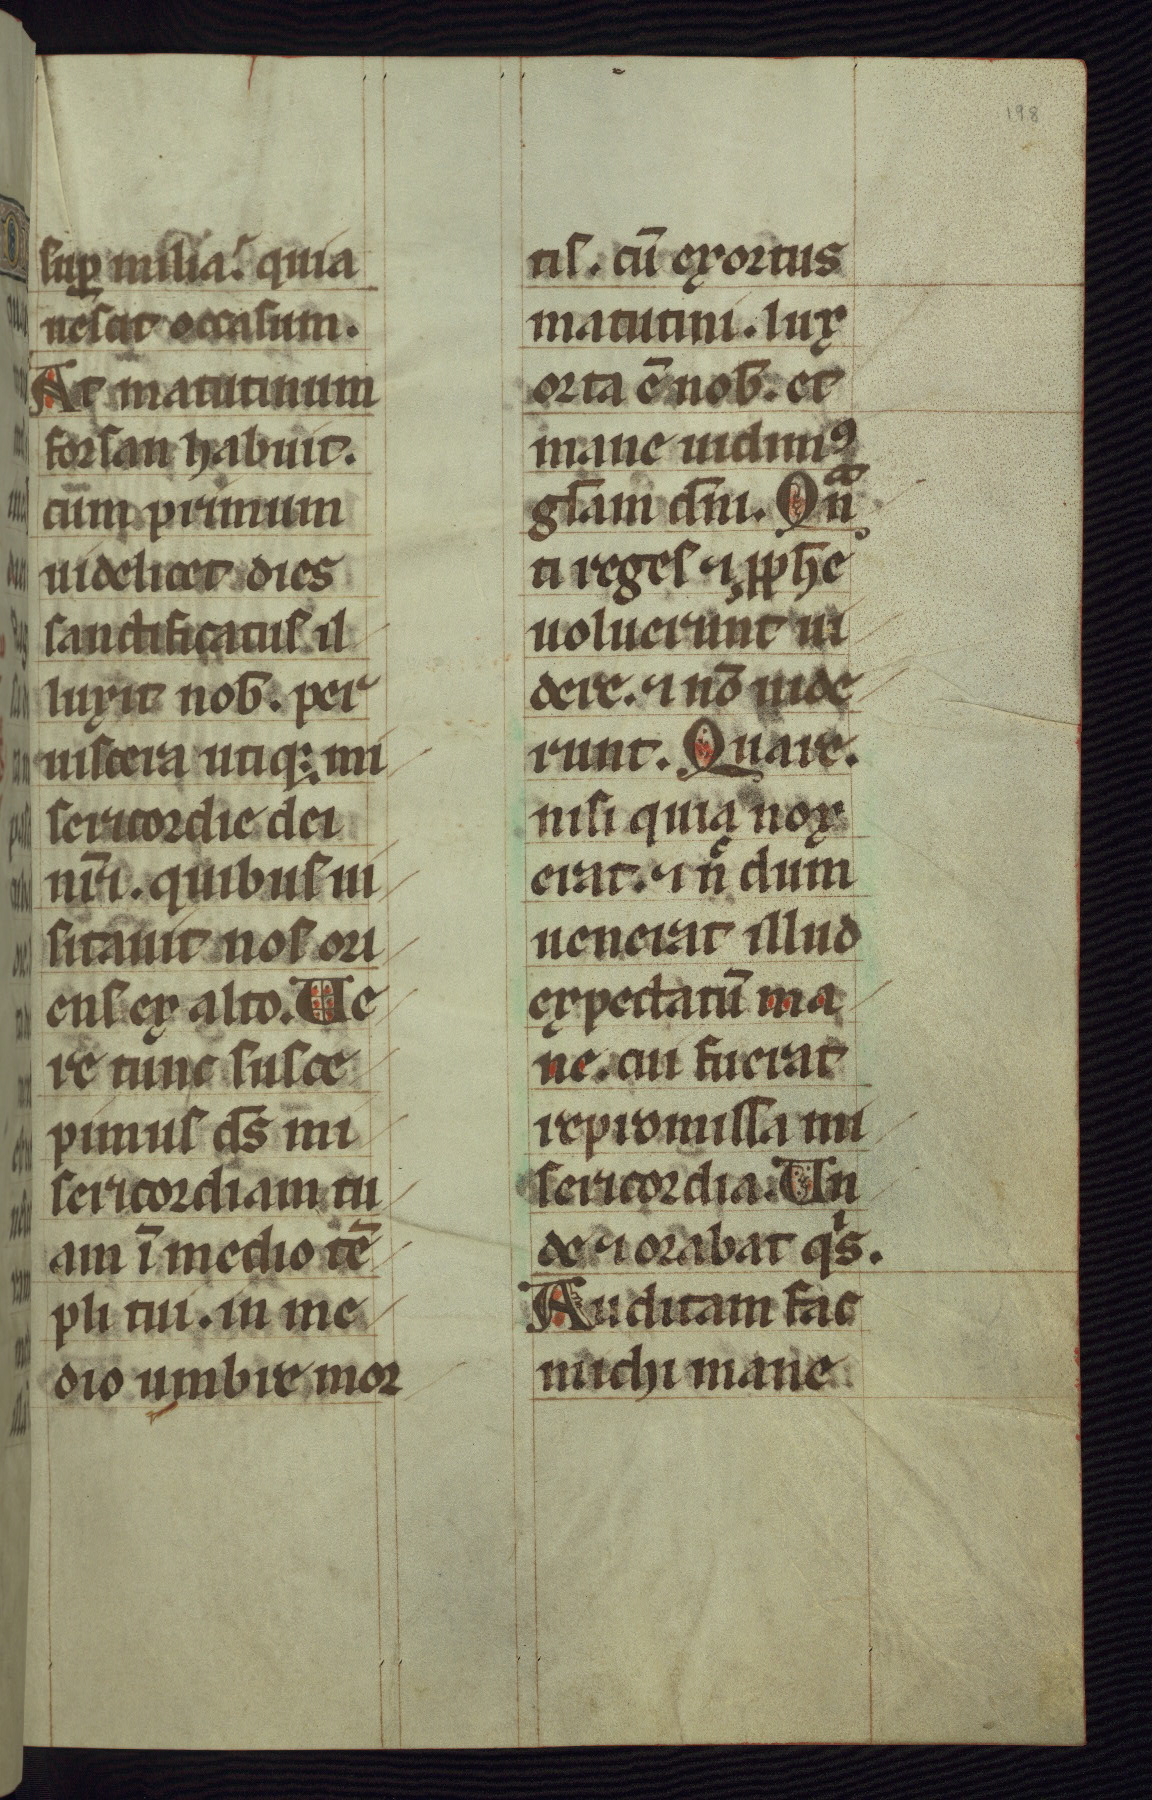 198
sup milia. quia
nescit occasum.
At matutinum
forsan habuit.
cum primum
uidelicet dies
sanctificatus il
luxit nob̄. per
uiscera utiqꝫ mi
sericordie dei
nr̄i. quibus ui
sitauit nos ori
ens ex alto. Ue
re tunc susce
pimus ds̄ mi
sericordiam tu
am ī medio tē
pli tui. in me
dio umbre mor
tis. cū exortus
matutini. lux
orta ē nob̄. et
mane uidimꝰ
gl̄am dn̄i. Qͣn̄
ti reges ⁊ ꝓph̄e
uoluerunt ui
dere. ⁊ nō uide
runt. Quare.
nisi quia nox
erat. ⁊ n̄c dum
uenerat illud
expectatū ma
ne. cui fuerat
repromissa mi
sericordia. Un
de ⁊ orabat qͥs.
Auditam fac
michi mane